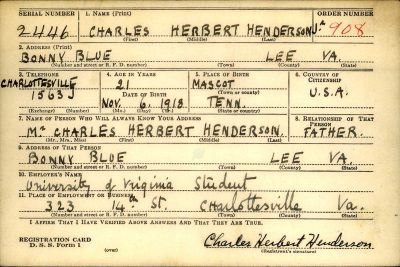 SERIAL NUMBER 1. NAME (Print) ORDER NUMBER
2446 CHARLES HERBERT HENDERSON Jr. 908
(First) (Middle) (Last)
2. ADDRESS (Print)
BONNY BLUE LEE VA.
(Number and street or R. F. D. number) (Town) (County) (State)
3. TELEPHONE 4. AGE IN YEARS 5. PLACE OF BIRTH 6. COUNTRY OF CITIZENSHIP
CHARLOTTESVILLE 21 MASCOT
DATE OF BIRTH (Town or county) U.S.A.
1563J NOV. 6, 1918 TENN.
(Exchange) (Number) (Mo.) (Day) (Yr.) (State or country)
7. NAME OF PERSON WHO WILL ALWAYS KNOW YOUR ADDRESS 8. RELATIONSHIP OF THAT PERSON
Mr. CHARLES HERBERT HENDERSON. FATHER.
(Mr., Mrs., Miss) (First) (Middle) (Last)
9. ADDRESS OF THAT PERSON
BONNY BLUE LEE VA.
(Number and street or R. F. D. number) (Town) (County) (State)
10. EMPLOYER'S NAME
University of Virginia Student
11. PLACE OF EMPLOYMENT OR BUSINESS
323 14th St. Charlottesville Va.
(Number and street or R. F. D. number) (Town) (County) (State)
I AFFIRM THAT I HAVE VERIFIED ABOVE ANSWERS AND THAT THEY ARE TRUE.
REGISTRATION CARD
D. S. S. Form 1 (over) Charles Herbert Henderson
(Registrant's signature)